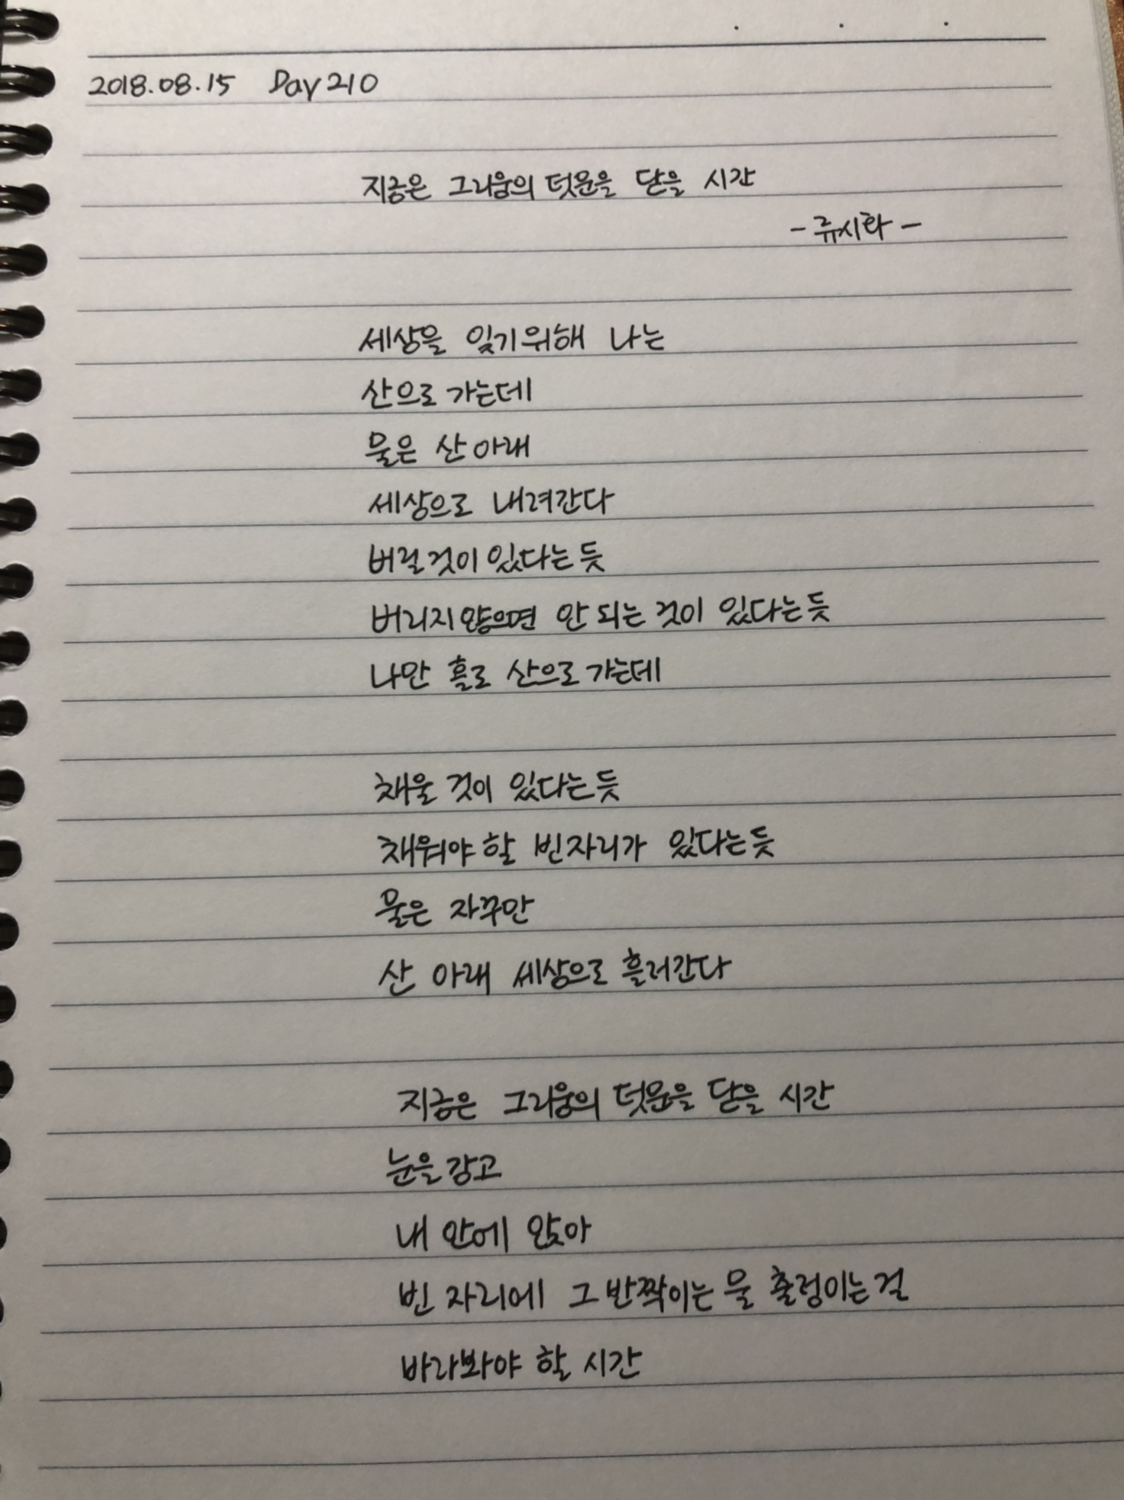 2018.08.15 Day210
지금은 그리움의 덧문을 닫을 시간
- 류시화 -
세상을 잊기위해 나는
산으로 가는데
물은 산 아래
세상으로 내려간다
버릴것이 있다는 듯
버리지않으면 안 되는 것이 있다는 듯
나만 홀로 산으로 가는데
채울 것이 있다는 듯
채워야 할 빈자리가 있다는 듯
물은 자꾸만
산 아래 세상으로 흘러간다
지금은 그리움의 덧문을 닫을 시간
눈을 감고
내 안에 앉아
빈 자리에 그 반짝이는 물 출렁이는 걸
바라봐야 할 시간